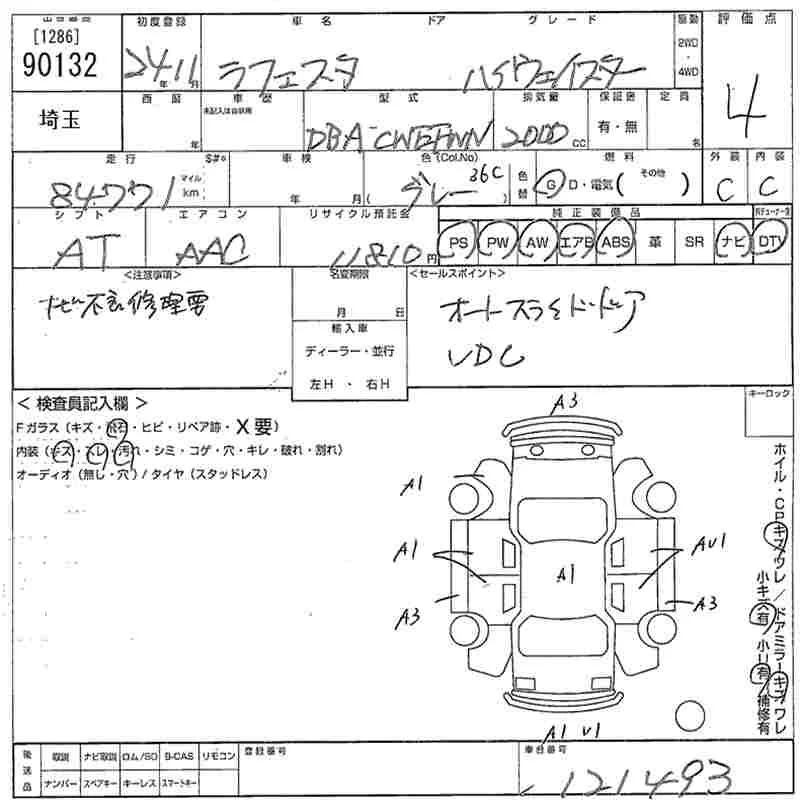 出品番号 初度登録 車名 ドア グレード 駆動 評価点
[1286]
90132 24年11月 ラフェスタ ハイウェイスター 2WD・4WD 4
埼玉 西暦 年 車歴 未記入は自家用 型式 排気量 保証書 定員
DBA-CWEFWN 2000cc 有・無 名
走行 S#* 車検 色(Col.No) 色替 燃料 外装 内装
84771 マイル km 年 月 グレー (36C) G D・電気( その他 ) C C
シフト エアコン リサイクル預託金 純正装備品
AT AAC 11810円 PS PW AW エアB ABS 革 SR ナビ DTV
<注意事項> 名変期限 <セールスポイント>
ナビ不良修理要 月 日 オートスライドドア
輸入車 VDC
ディーラー・並行
左H ・ 右H
< 検査員記入欄 > キーロック
Fガラス(キズ・飛石・ヒビ・リペア跡・X要)
内装(キズ・スレ・汚れ・シミ・コゲ・穴・キレ・破れ・割れ)
オーディオ(無し・穴)/タイヤ(スタッドレス)
A3
A1
A1 A1 AU1
A3 A3
A1 U1
ホイル・CPキズワレ/ドアミラーキズワレ
小キズ有/小U有/補修有
後送品 取説 ナビ取説 ロム/SD B-CAS リモコン 登録番号 車台番号
ナンバー スペアキー キーレス スマートキー 121493